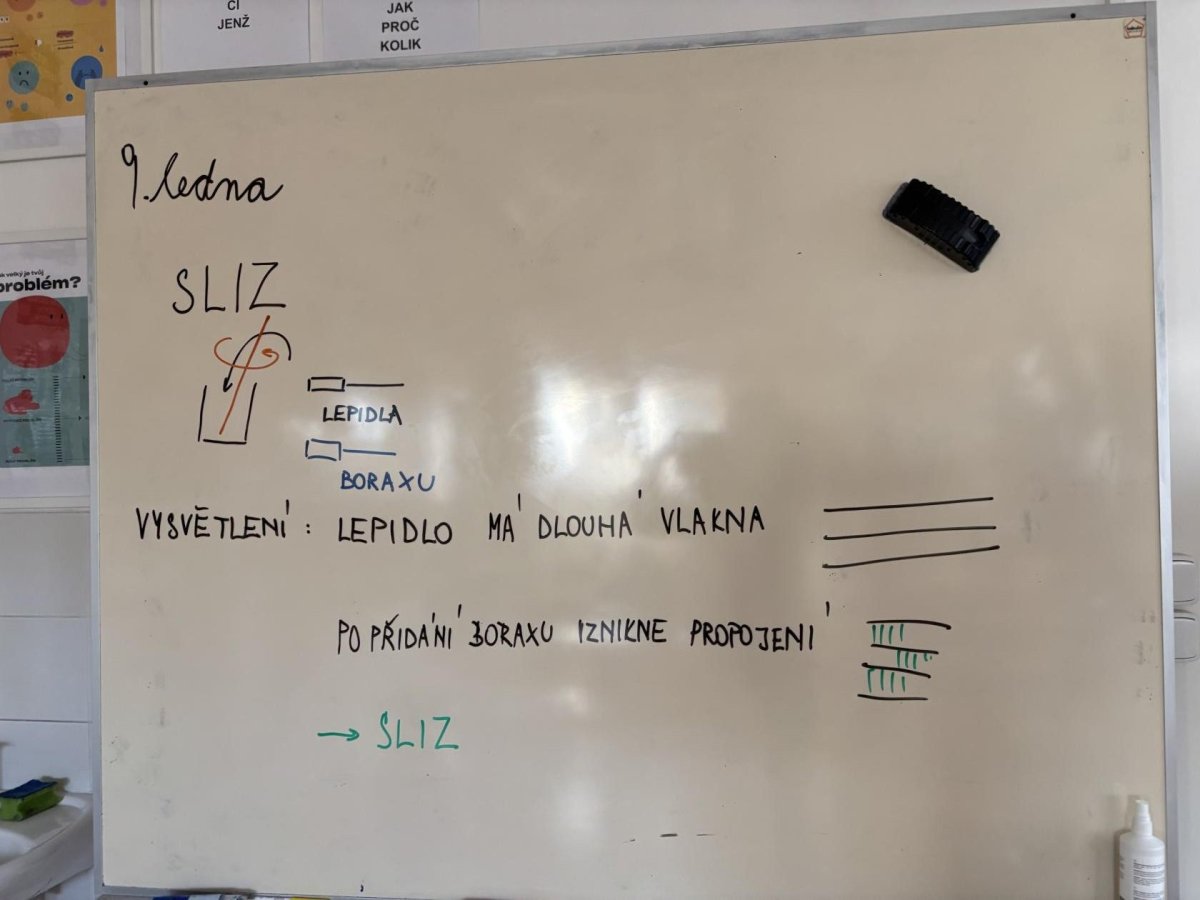 CI
JENŽ
JAK
PROČ
KOLIK
9. ledna
problém?
SLIZ
LEPIDLA
BORAXU
VYSVĚTLENÍ : LEPIDLO MÁ DLOUHÁ VLAKNA
PO PŘIDÁNÍ BORAXU IZNIKNE PROPOJENÍ
→ SLIZ